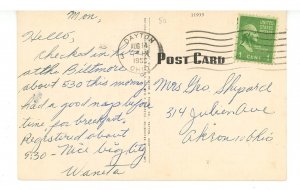 Mon,
Hello,
checked in here
at the Biltmore
about 530 this morning
Had a good nap before
time for breakfast.
Registered about
530 - Nice big city
Wanita
DAYTON
AUG 14
1950
OHIO
POST CARD
UNITED STATES
1 CENT 1
Mrs Geo Shepard
314 Julien Ave
Akron Ohio